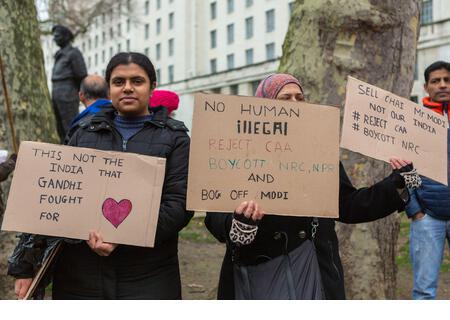 THIS NOT THE
INDIA THAT
GANDHI
FOUGHT
FOR
NO HUMAN
illEGAl
REJECT CAA
BOYCOTT NRC, NPR
AND
BOG OFF MODI
SELL CHAI Mr MODI
NOT OUR INDIA
# REJECT CAA
# BOYCOTT NRC